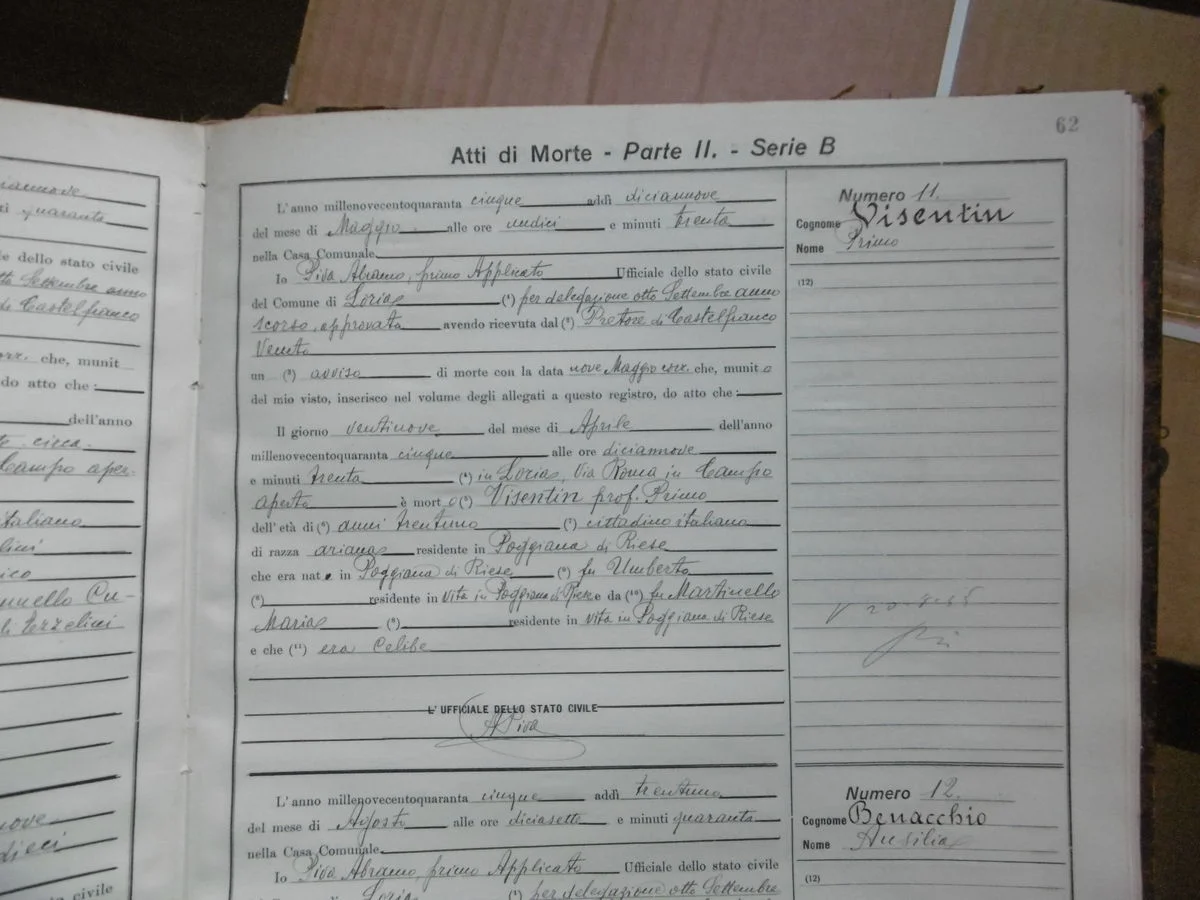 iannove
ti quaranta
e dello stato civile
tto Settembre anno
di Castelfranco
orr. che, munit
do atto che :
dell'anno
te circa
Campo aper-
italiano
lini
ico
nnello Cu-
di Ezzelini
nove
dieci
civile
62
Atti di Morte - Parte II. - Serie B
L'anno millenovecentoquaranta cinque addì diciannove
del mese di Maggio alle ore undici e minuti trenta
nella Casa Comunale
Io Piva Abramo, primo Applicato Ufficiale dello stato civile
del Comune di Loria (¹) per delegazione otto Settembre anno
scorso, approvata avendo ricevuta dal (²) Pretore di Castelfranco
Veneto
un (³) avviso di morte con la data nove Maggio corr. che, munit o
del mio visto, inserisco nel volume degli allegati a questo registro, do atto che :
Il giorno ventinove del mese di Aprile dell'anno
millenovecentoquaranta cinque alle ore diciannove
e minuti trenta (⁴) in Loria, Via Roma in Campo
aperto è mort o (⁵) Visentin prof. Primo
dell'età di (⁶) anni trentuno (⁷) cittadino italiano
di razza ariana residente in Poggiana di Riese
che era nat o in Poggiana di Riese (⁸) fu Umberto
(⁹) residente in vita in Poggiana di Riese e da (¹⁰) fu Martinello
Maria (⁹) residente in vita in Poggiana di Riese
e che (¹¹) era Celibe
L' UFFICIALE DELLO STATO CIVILE
A Piva
Numero 11.
Cognome Visentin
Nome Primo
(12)
L'anno millenovecentoquaranta cinque addì trentuno
del mese di Agosto alle ore diciasette e minuti quaranta
nella Casa Comunale
Io Piva Abramo, primo Applicato Ufficiale dello stato civile
del Comune di Loria (¹) per delegazione otto Settembre
Numero 12.
Cognome Benacchio
Nome Ausilia
(12)